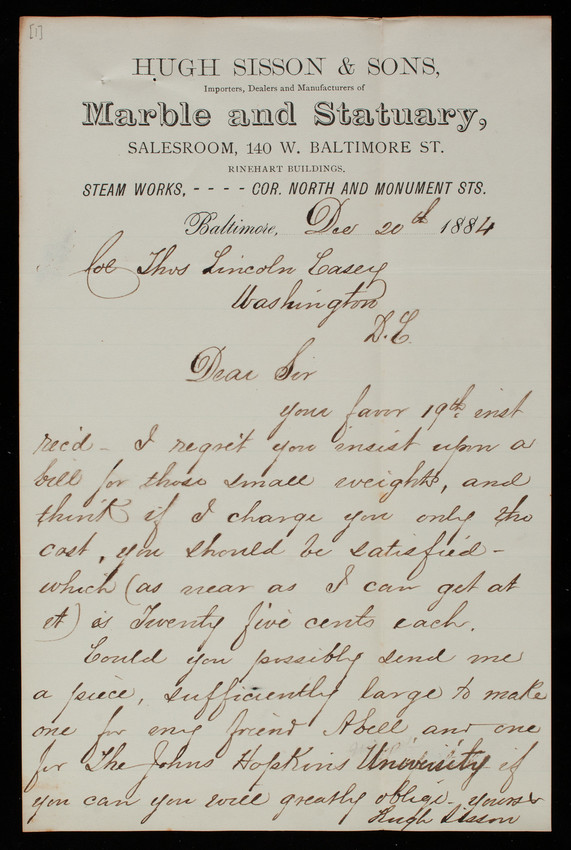 [1]
HUGH SISSON & SONS,
Importers, Dealers and Manufacturers of
Marble and Statuary,
SALESROOM, 140 W. BALTIMORE ST.
RINEHART BUILDINGS.
STEAM WORKS, - - - - COR. NORTH AND MONUMENT STS.
Baltimore, Dec 20th 1884
Col Thos Lincoln Casey
Washington
D.C.
Dear Sir
your favor 19th inst
rec'd - I regret you insist upon a
bill for those small weights, and
think if I charge you only the
cost, you should be satisfied -
which (as near as I can get at
it) is Twenty five cents each.
Could you possibly send me
a piece, sufficiently large to make
one for my friend Abell, and one
for The Johns Hopkins University if
you can you will greatly oblige - yours
Hugh Sisson